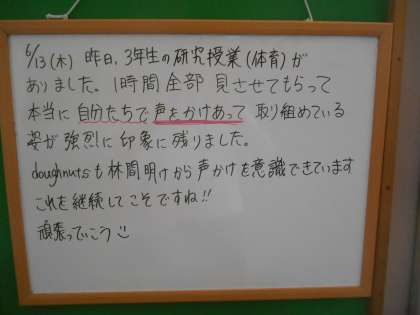 6/13(木) 昨日、3年生の研究授業(体育)が
ありました。1時間全部 見させてもらって
本当に自分たちで声をかけあって 取り組めている
姿が強烈に印象に残りました。
doughnutsも林間明けから声かけを意識できています
これを継続してこそですね!!
頑張っていこう